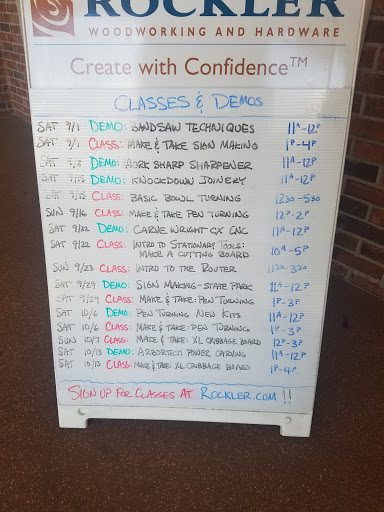 ROCKLER
WOODWORKING AND HARDWARE
Create with Confidence™
CLASSES & DEMOS
SAT 9/1 DEMO: BANDSAW TECHNIQUES 11A-12P
SAT 9/1 CLASS: MAKE & TAKE SIGN MAKING 1P-4P
SAT 9/8 DEMO: WORK SHARP SHARPENER 11A-12P
SAT 9/15 DEMO: KNOCKDOWN JOINERY 11A-12P
SAT 9/15 CLASS: BASIC BOWL TURNING 1230-530
SUN 9/16 CLASS: MAKE & TAKE PEN TURNING 12P-2P
SAT 9/22 DEMO: CARVEWRIGHT CX CNC 11A-12P
SAT 9/22 CLASS: INTRO TO STATIONARY TOOLS:
MAKE A CUTTING BOARD 10A-5P
SUN 9/23 CLASS: INTRO TO THE ROUTER 1130-330
SAT 9/29 DEMO: SIGN MAKING-STATE PARK 11A-12P
SAT 9/29 CLASS: MAKE & TAKE: PEN TURNING 1P-3P
SAT 10/6 DEMO: PEN TURNING NEW KITS 11A-12P
SAT 10/6 CLASS: MAKE & TAKE: PEN TURNING 1P-3P
SUN 10/7 CLASS: MAKE & TAKE: XL CRIBBAGE BOARD 12P-3P
SAT 10/13 DEMO: ARBORTECH POWER CARVING 11A-12P
SAT 10/13 CLASS: MAKE & TAKE XL CRIBBAGE BOARD 1P-4P
SIGN UP FOR CLASSES AT ROCKLER.COM !!